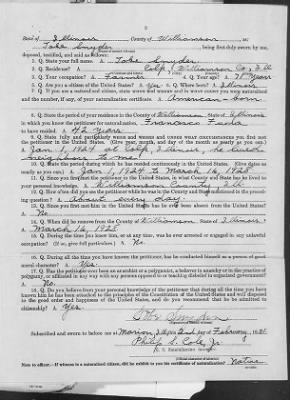 State of Illinois County of Williamson ss:
Jake Snyder, being first duly sworn by me,
deposed, testified, and said as follows:
1. Q. State your full name. A. Jake Snyder
2. Q. Residence? A. Colp, Williamson Co., Ill
3. Q. Your occupation? A. Farmer 4. Q. Your age? A. 71 Years
5. Q. Are you a citizen of the United States? A. Yes 6. Q. Where born? A. Illinois
7. Q. If you are a naturalized citizen, state when and where and in what court you were naturalized
and the number, if any, of your naturalization certificate. A. American-born
8. Q. State the period of your residence in the County of Williamson, State of Illinois
in which you know the petitioner for naturalization,
to have resided. A. 42 Years
9. Q. State fully and particularly when and where and under what circumstances you first met
the petitioner in the United States. (Give year, month, and day of the month as nearly as you can.)
A. Jan 1, 1924 at Colp, Illinois, as
neighbors to me.
10. Q. State the period during which he has resided continuously in the United States. (Give dates as
nearly as you can.) A. Jan 1, 1924 to March 16, 1928
11. Q. Since you first met the petitioner in the United States, in what County and State has he lived to
your personal knowledge. A. Williamson County, Ill
12. Q. How often did you see the petitioner while he was in the County mentioned in the preced-
ing question? A. About every day
13. Q. Since you first met him in the United States has he ever been absent from the United States?
A. No
14. Q. When did he remove from the County of Williamson, State of Illinois
A. March 16, 1928
15. Q. During the time you knew him, at any time, was he ever arrested or engaged in any unlawful
occupation? (If so, give full particulars.) A. No
16. Q. During all the time you have known the petitioner, has he conducted himself as a person of good
moral character? A. Yes.
17. Q. Has the petitioner ever been an anarchist or a polygamist, a believer in anarchy or in the practice of
polygamy, or affiliated in any way with any persons opposed to or teaching disbelief in organized government?
A. No.
18. Q. Do you believe from your personal knowledge of the petitioner that during all the time you have
known him he has been attached to the principles of the Constitution of the United States and well disposed to
the good order and happiness of the United States, and do you recommend that he be admitted to
citizenship? A. Yes
Jake Snyder
Subscribed and sworn to before me at Marion, Illinois 2nd day of February
Philip S. Cole, Jr.
U. S. Naturalization
Note to officer.—If witness is a naturalized citizen, did he exhibit to you his certificate of naturalization? Native